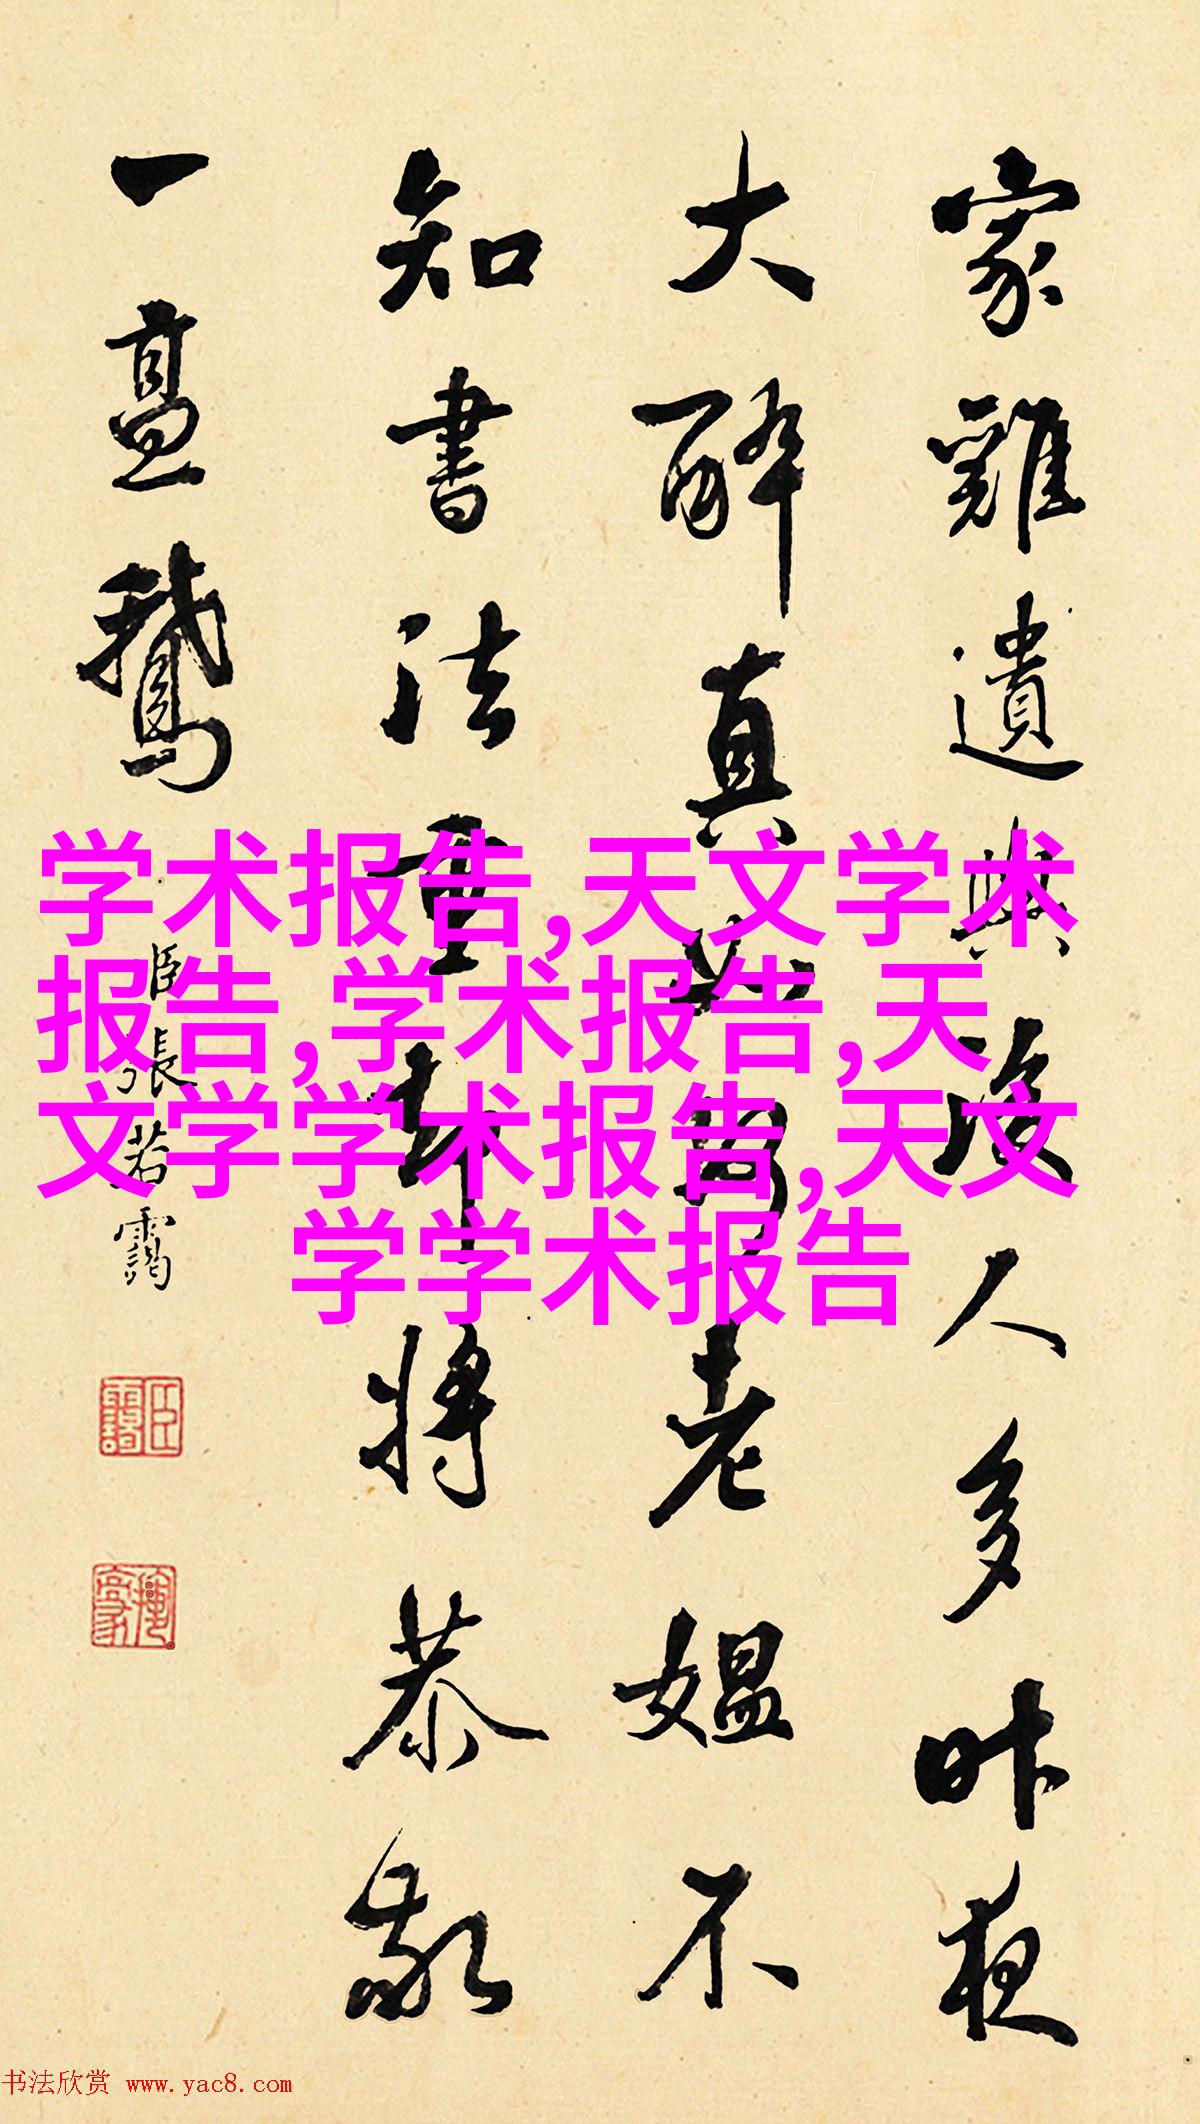 家雞遺與後人多昨夜
大醉真如老媼不
知書法重却將恭敬
一鵝
臣張若靄
学术报告,天文学术
报告,学术报告,天
文学学术报告,天文
学学术报告
书法欣赏 www.yac8.com